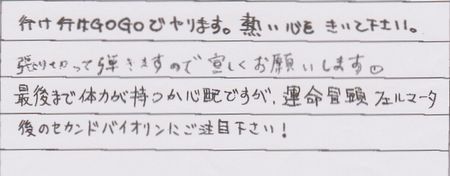 行け行けGOGOでやります。熱い心をきいて下さい。
張り切って弾きますので宜しくお願いします。
最後まで体力が持つか心配ですが、運命冒頭フェルマータ
後のセカンドバイオリンにご注目下さい！